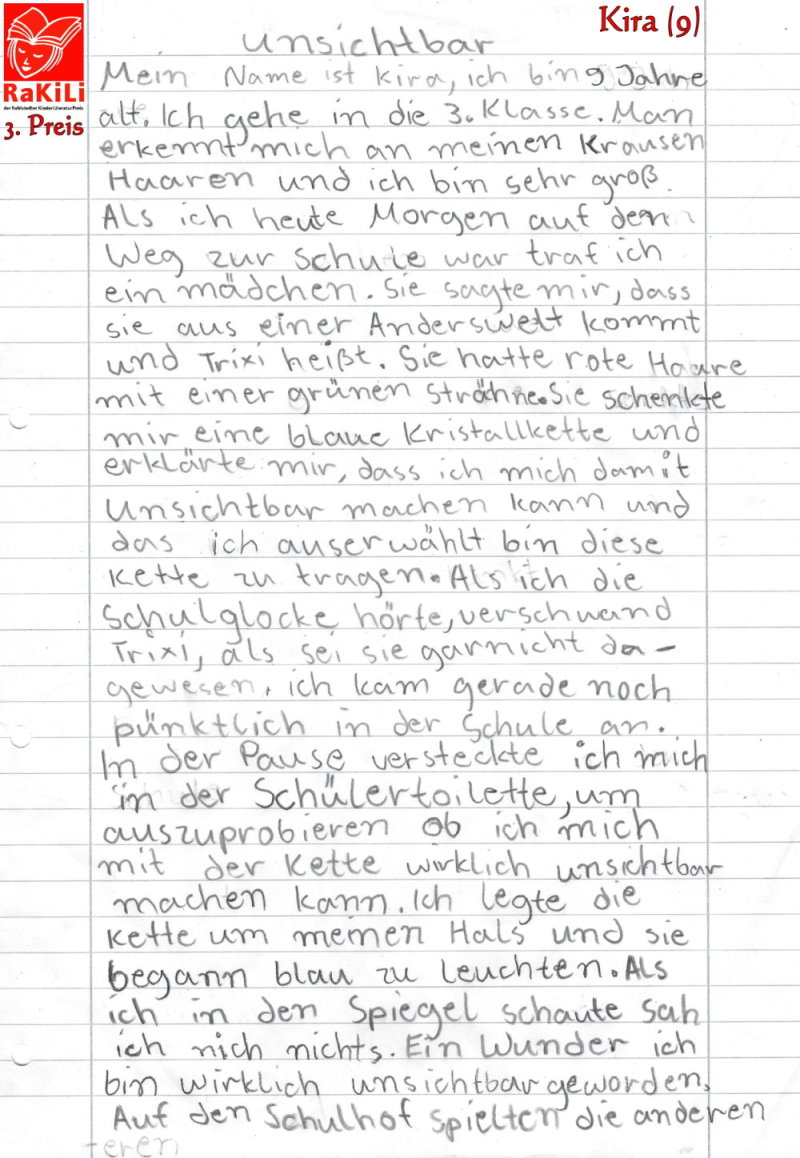 Kira (9)
RaKiLi
Der Rahlstedter KinderLiteraturPreis
3. Preis
unsichtbar
Mein Name ist Kira, ich bin 9 Jahre
alt. Ich gehe in die 3. Klasse. Man
erkennt mich an meinen Krausen
Haaren und ich bin sehr groß.
Als ich heute Morgen auf den
Weg zur Schule war traf ich
ein mädchen. Sie sagte mir, dass
sie aus einer Anderswelt kommt
und Trixi heißt. Sie hatte rote Haare
mit einer grünen Strähne. Sie schenkte
mir eine blaue Kristallkette und
erklärte mir, dass ich mich damit
Unsichtbar machen kann und
das ich auserwählt bin diese
Kette zu tragen. Als ich die
Schulglocke hörte, verschwand
Trixi, als sei sie garnicht da-
gewesen. ich kam gerade noch
pünktlich in der Schule an.
In der Pause versteckte ich mich
in der Schülertoilette, um
auszuprobieren ob ich mich
mit der Kette wirklich unsichtbar
machen kann. Ich legte die
Kette um meinen Hals und sie
begann blau zu leuchten. Als
ich in den Spiegel schaute sah
ich nich nichts. Ein Wunder ich
bin wirklich unsichtbar geworden.
Auf den Schulhof spielten die anderen
teren